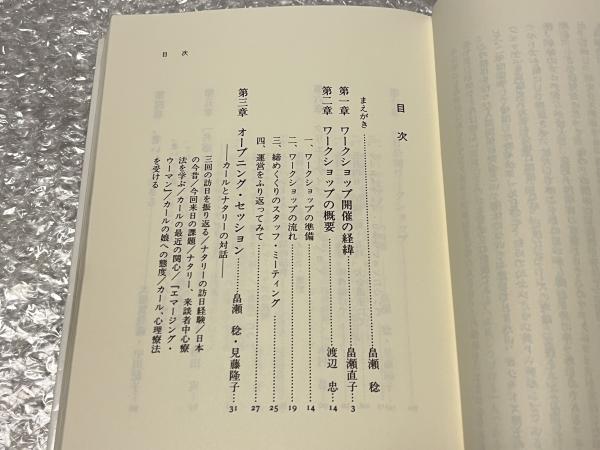 目次
まえがき……………畠瀬 稔
第一章 ワークショップ開催の経緯……畠瀬直子… 3
第二章 ワークショップの概要……渡辺 忠…14
一、ワークショップの準備……14
二、ワークショップの流れ……19
三、締めくくりのスタッフ・ミーティング……25
四、運営をふり返ってみて……27
第三章 オープニング・セッション……畠瀬 稔・見藤隆子…31
――カールとナタリーの対話――
三回の訪日を振り返る／ナタリーの訪日経験／日本
の今昔／今回来日の課題／ナタリー、来談者中心療
法を学ぶ／カールの最近の関心／『エマージング・
ウーマン』／カールの娘への態度／カール、心理療法
を受ける
目次